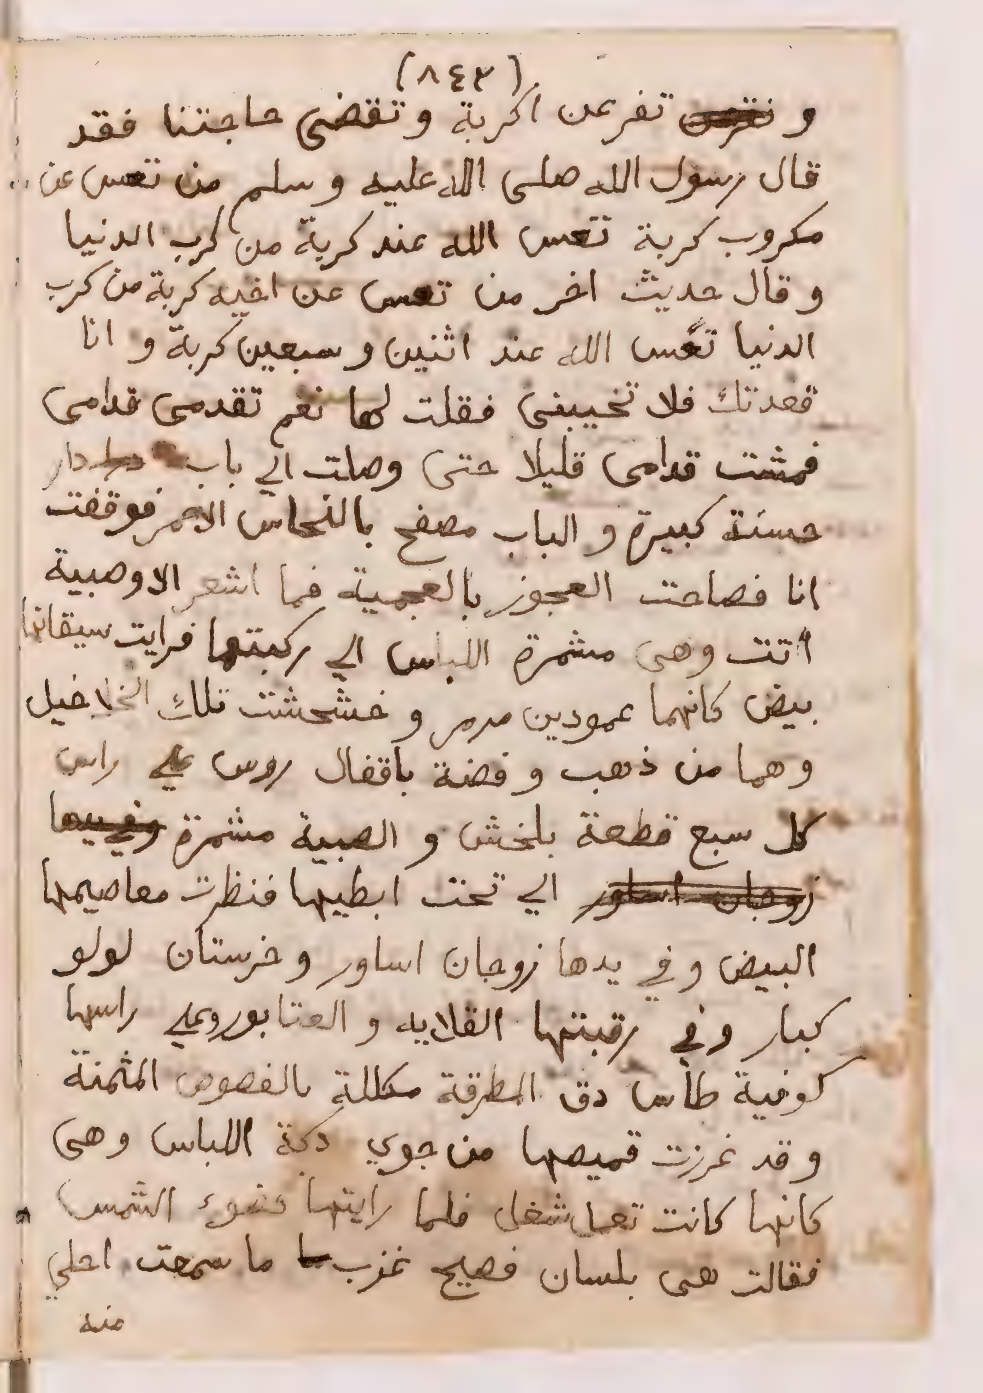 (٨٤٣)
و تفرعن اكربة وتقضى حاجتنا فقد
قال رسول الله صلى الله عليه وسلم من تعس عن
مكروب كربة تعس الله عند كربة من كرب الدنيا
و قال حديث اخر من تعس عن اخيه كربة من كرب
الدنيا تعس الله عند اثنين و سبعين كربة و انا
قعدتك فلا تخيبنى فقلت لها نعم تقدمى قدامى
فمشت قدامى قليلا حتى وصلت الي باب دار
حسنة كبيرة و الباب مصفح بالنحاس الاحمر فوقفت
انا فصاحت العجوز بالعجمية فما اشعر الا وصبية
أتت وهى مشمرة اللباس الي ركبتها فرايت سيقانها
بيض كانهما عمودين مرمر و خشخشت تلك الخلاخيل
وهما من ذهب و فضة باقفال روس علي راس
كل سبع قطعة بلخش و الصبية مشمرة وفي يدها
زوجان اساور الي تحت ابطيها فنظرت معاصيمها
البيض وفي يدها زوجان اساور و خرستان لولو
كبار وفي رقبتها القلايه و العتابور وعلي راسها
كوفية طاس دق المطرقة مكللة بالفصوص المثمنة
و قد غرزت قميصها من جوي دكة اللباس وهى
كانها كانت تعمل شغل فلما رايتها كضوء الشمس
فقالت هى بلسان فصيح عذب ما سمعت احلي
منه